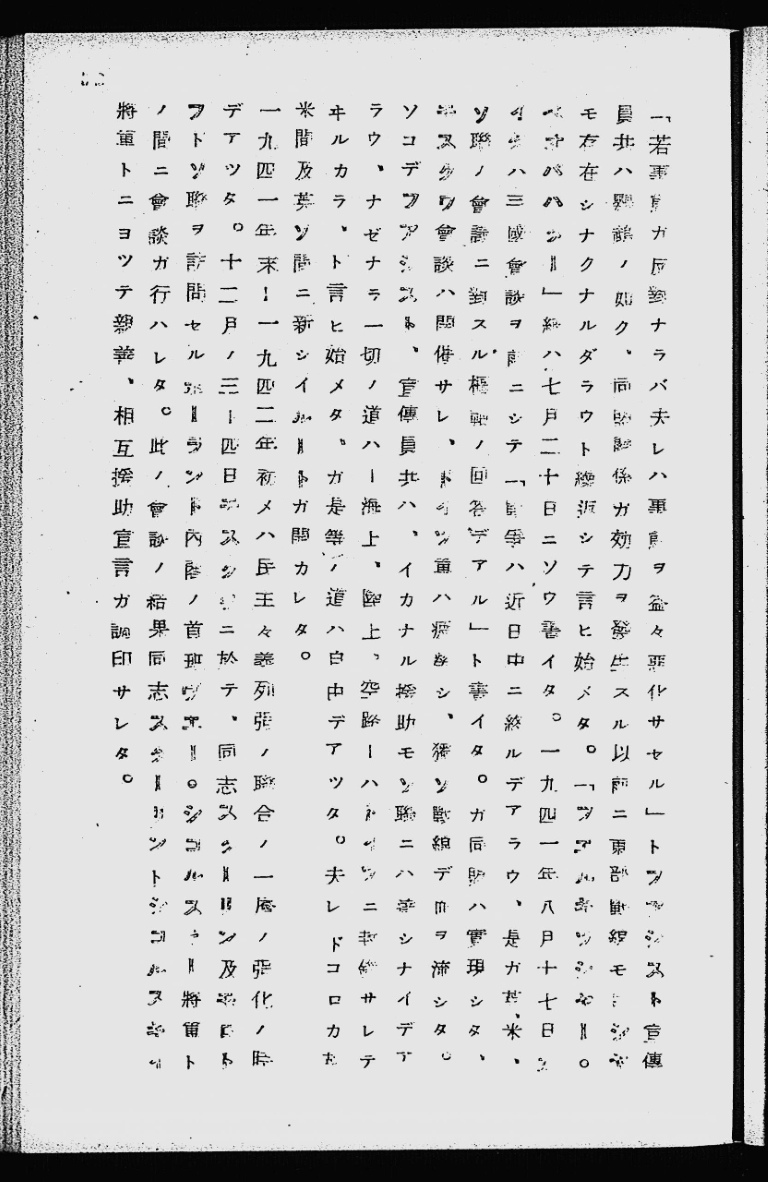 「若事員ガ反對ナラバ夫レハ事員ヲ益々惡化サセル」トファシスト宣傳
員共ハ鸚鵡ノ如ク、同盟關係ガ効力ヲ發生スル以前ニ東部戰線モ
モ存在シナクナルダラウト繰返シテ言ヒ始メタ。「フ
」紙ハ七月二十日ニソウ書イタ。一九四一年八月十七日
ハ三國會談ヲ前ニシテ「戰爭ハ近日中ニ終ルデアラウ、是ガ英、米、
ソ聯ノ會議ニ對スル樞軸ノ回答デアル」ト書イタ。ガ同盟ハ實現シタ、
モスクワ會談ハ開催サレ、ドイツ軍ハ シ、獨ソ戰線デ血ヲ流シタ。
ソコデファシスト、宣傳員共ハ、イカナル援助モソ聯ニハ着シナイデア
ラウ、ナゼナラ一切ノ道ハー海上、陸上、空路ーハドイツニ封鎖サレテ
ヰルカラ、ト言ヒ始メタ、ガ是等ノ道ハ自由デアツタ。夫レドコロカ
米間及英ソ間ニ新シイルートガ開カレタ。
一九四一年末ー一九四二年初メハ民主々義列强ノ聯合ノ一層ノ强化ノ時
デアツタ。十二月ノ三ー四日モスクワニ於テ、同志スターリン及モロト
フトソ聯ヲ訪問セルポーランド内閣ノ首班ヴェー。シコルスキー將軍ト
ノ間ニ會談ガ行ハレタ。此ノ會談ノ結果同志スターリントシコルスキイ
將軍トニヨツテ親善、相互援助宣言ガ調印サレタ。